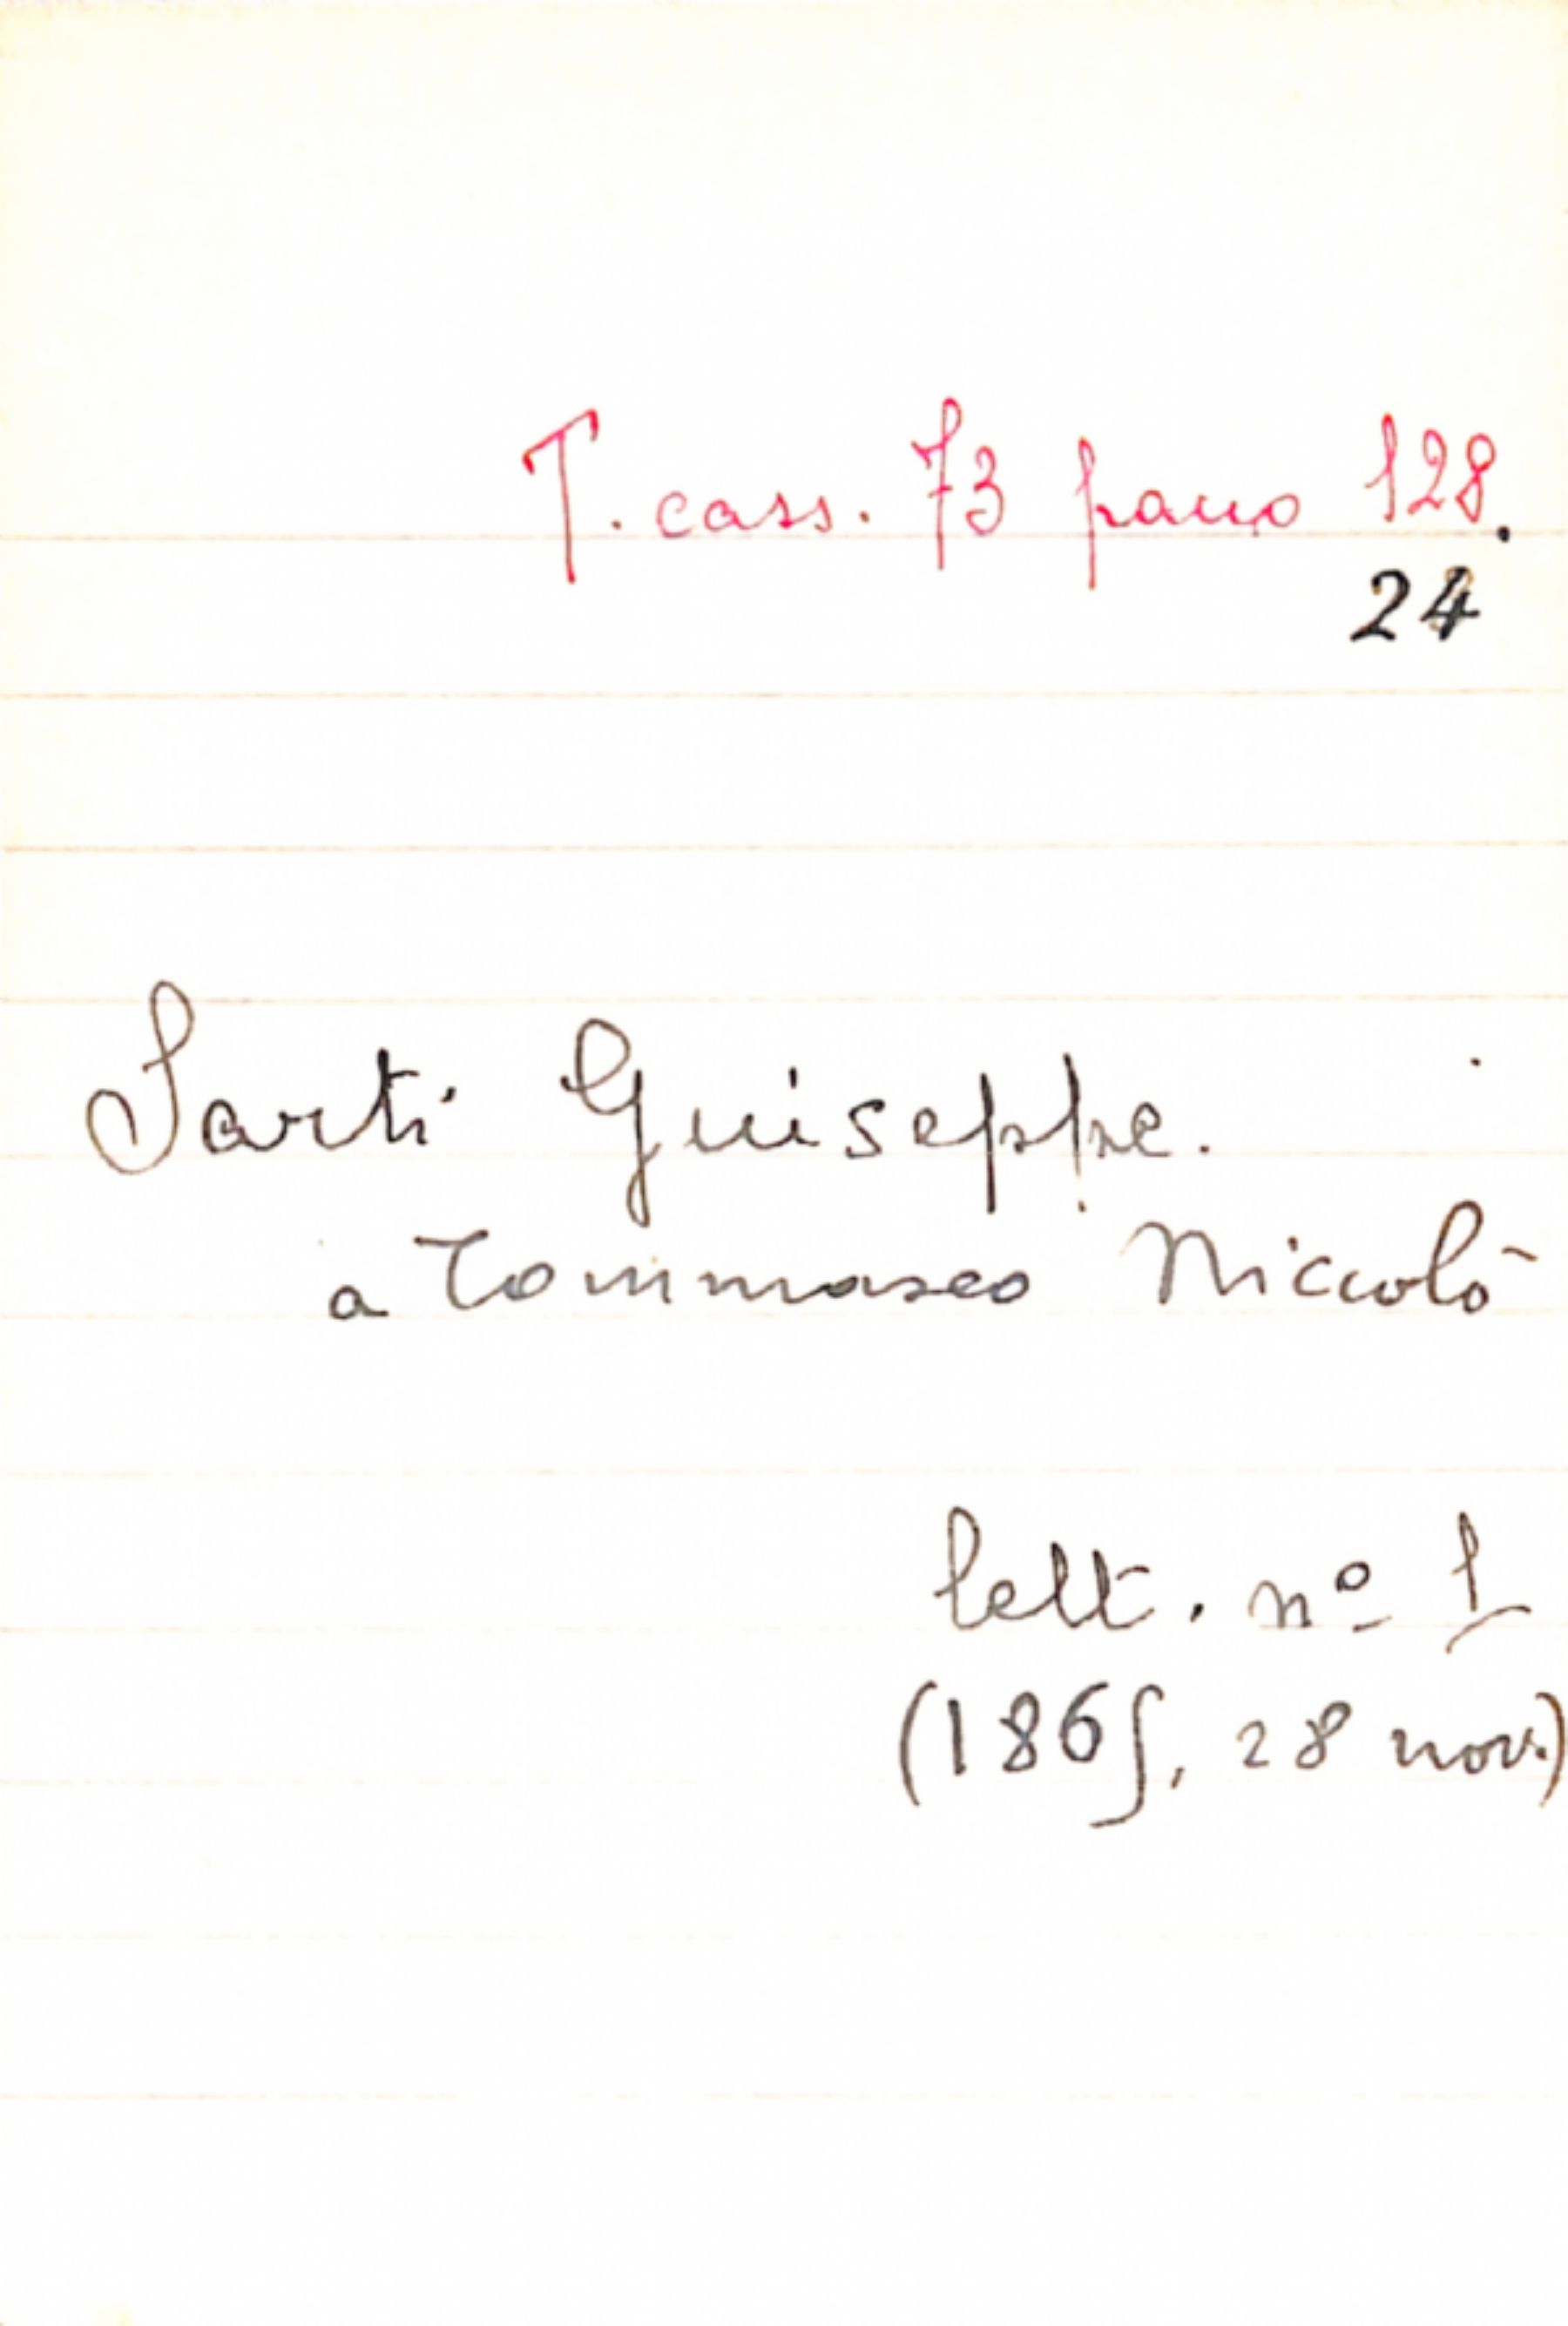 T. cass. 73 panno 128.
24
Sarti Giuseppe.
a Tommaseo Niccolò
lett. nº 1
(1865, 28 nov.)